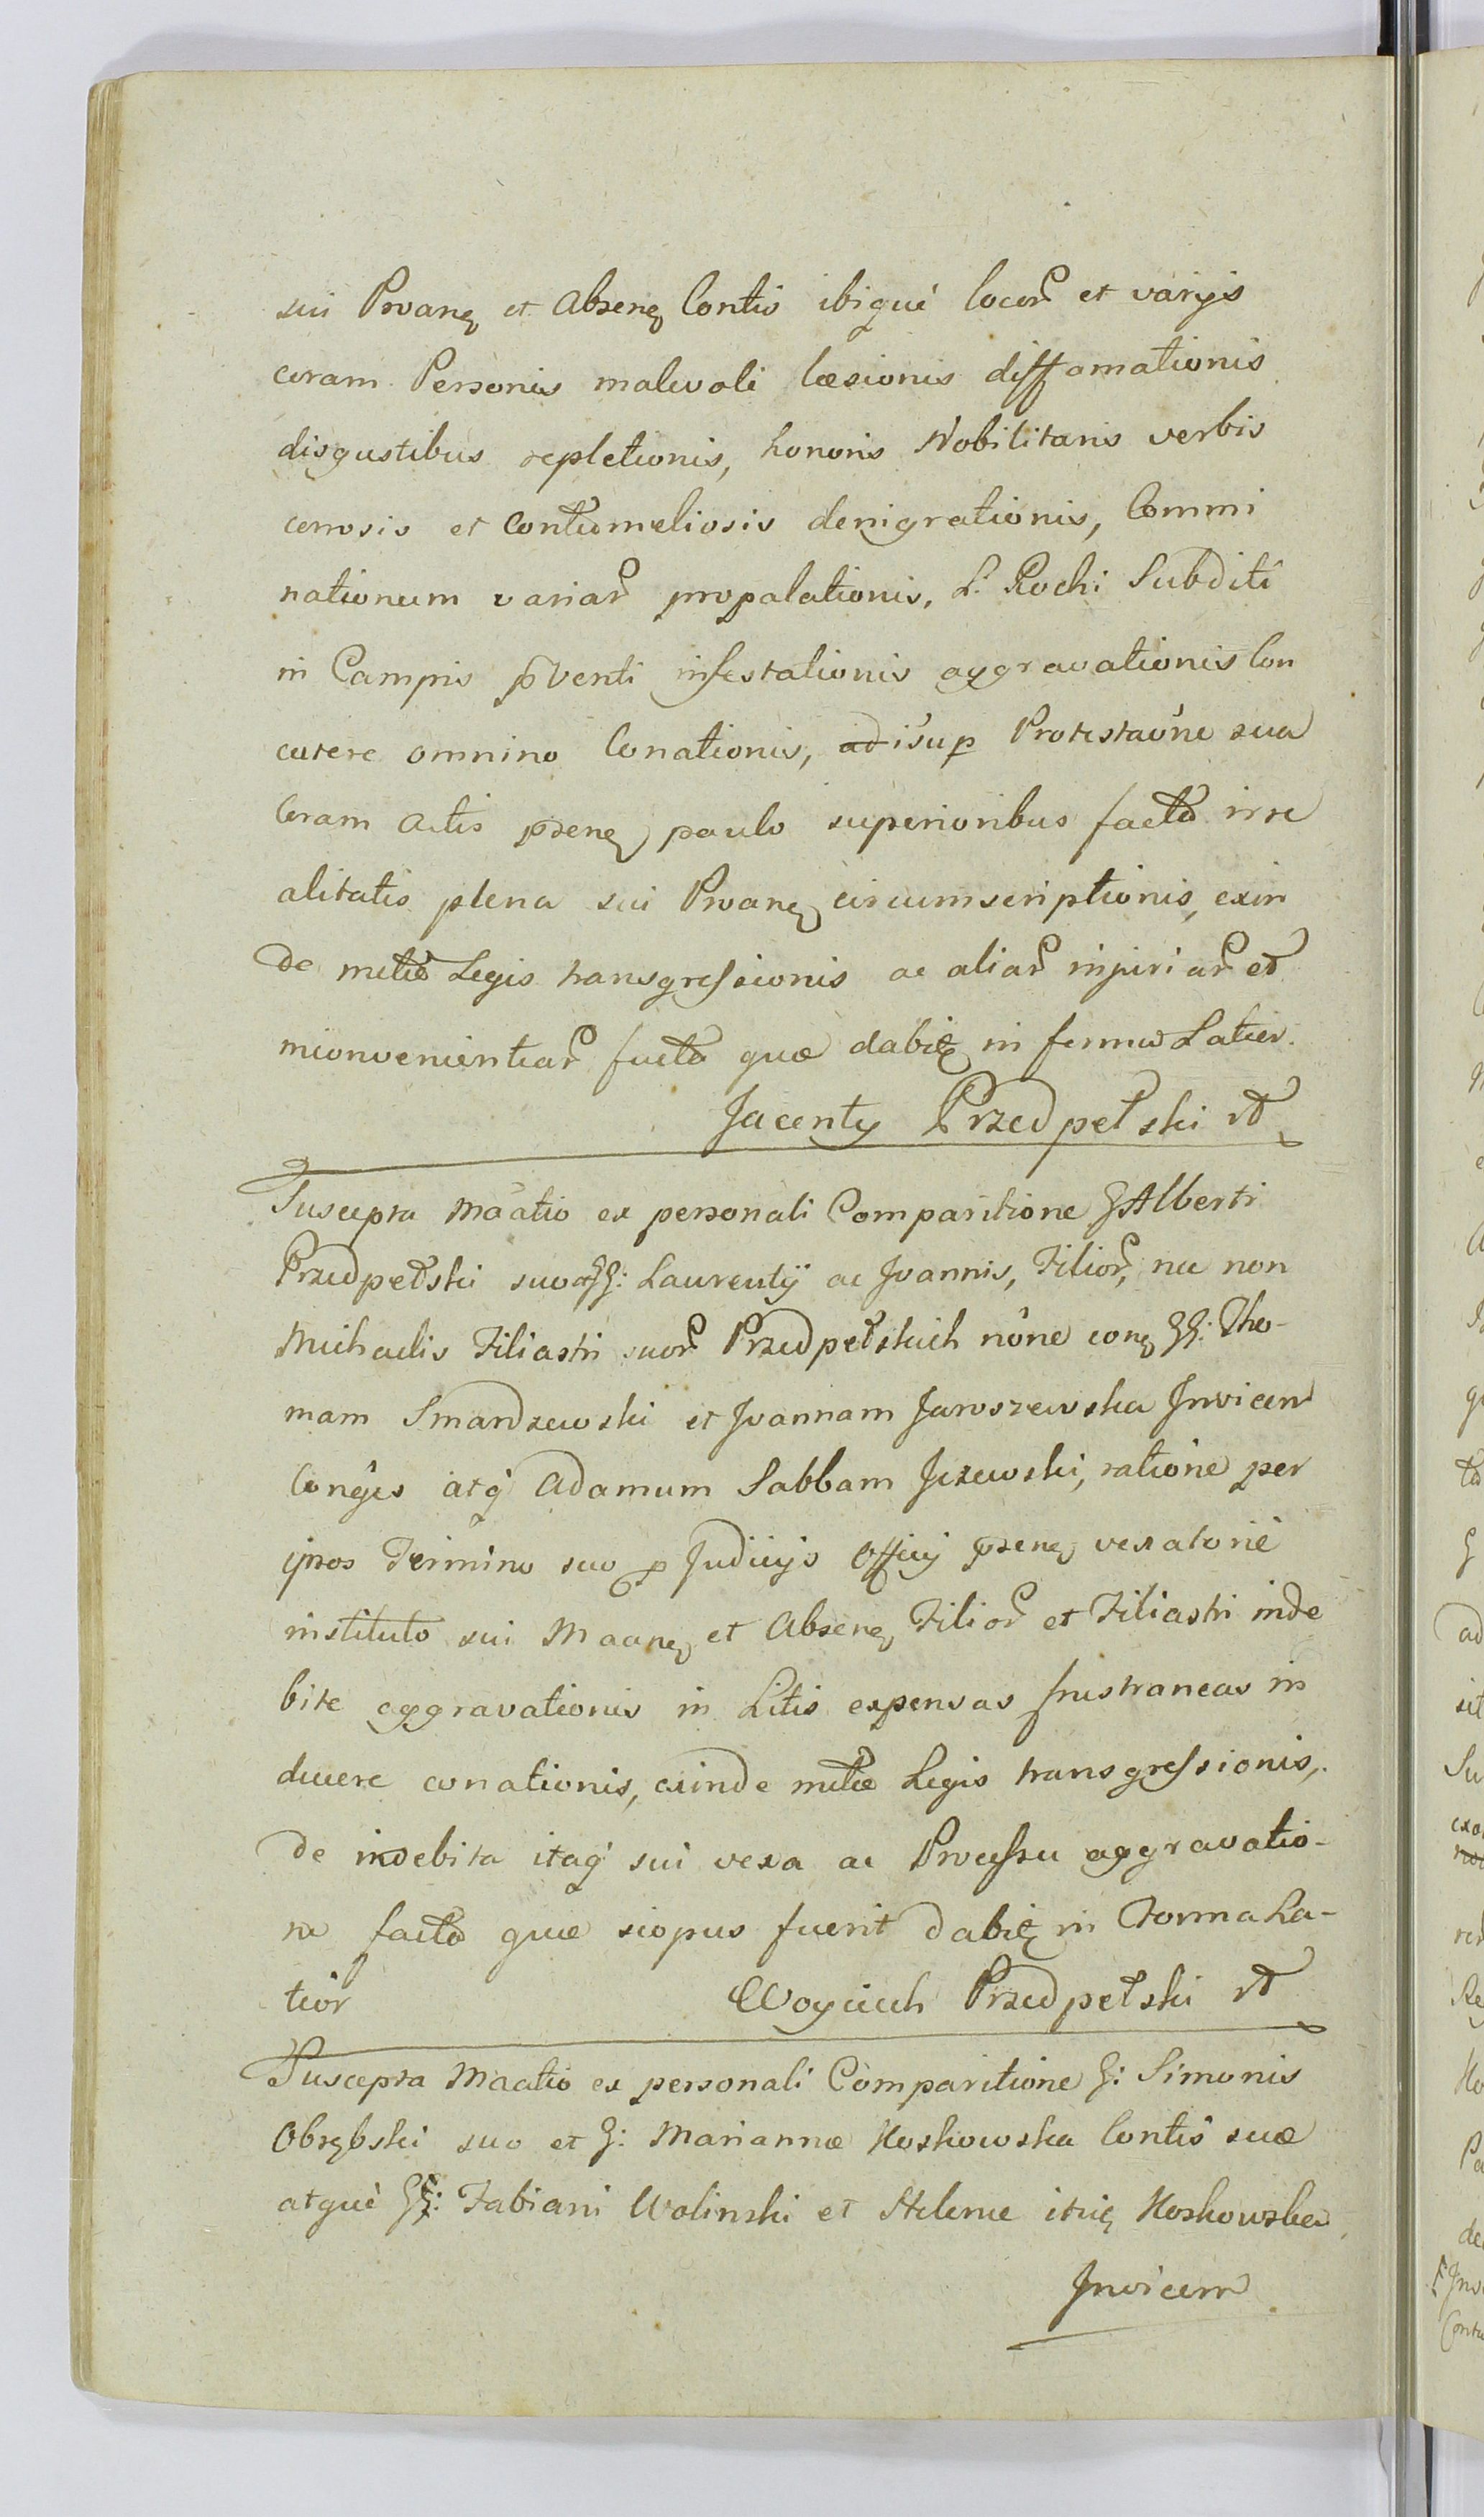 sui Prôanẽ et Absenẽ Contis ibiquè locor̃ et varijs
coram Personis malevoli læsionis diffamationis
disgustibus repletionis, honoris Nobilitaris verbis
cerrosis et Contumeliosis denigrationis, Commi
nationum variar̃ propalationis, L. Rochi Subditi
in Campis pventi infestationis aggravationis Con
cutere omnino Conationis, isup Protestaône sua
Coram Actis psenẽ paulo superioribus facta irre
alitatis plena sui Proanẽ circumscriptionis, exin
de metæ Legis transgressionis ac aliar̃ injuriar̃ et
inconvenientiar̃ facta quæ dabit in forma Latior.
Jacenty Przedpełski
Suscepta Maatio ex personali Comparitione G Alberti
Przedpełski suo GG: Laurentij ac Joannis, Filior̃, nec non
Michaelis Filiastri suor̃ Przedpełskich nône conẽ GG: Tho-
mam Smardzewski et Joannam Jaroszewska Invicem
Conges atq Adamum Sabbam Jezewski, ratione per
ipsos Termino suo p Judicijs Officij psenẽ vexatorie
instituto sui Maanẽ et Absenẽ Filior̃ et Filiastri inde
bite aggravationis in Litis expensas frustraneas in
ducere conationis, exinde metæ Legis transgressionis,
de indebita itaq sui vexa ac Processu aggravatio-
ne facta quæ siopus fuerit dabit in Forma La-
tior
Woyciech Przedpełski
Suscepta Maatio ex personali Comparitione G: Simonis
Obrębski suo et G: Mariannæ Koskowska Contis suæ
atquè GG: Fabiani Wolinski et Helenæ itiẽ Koskowska
Invicem